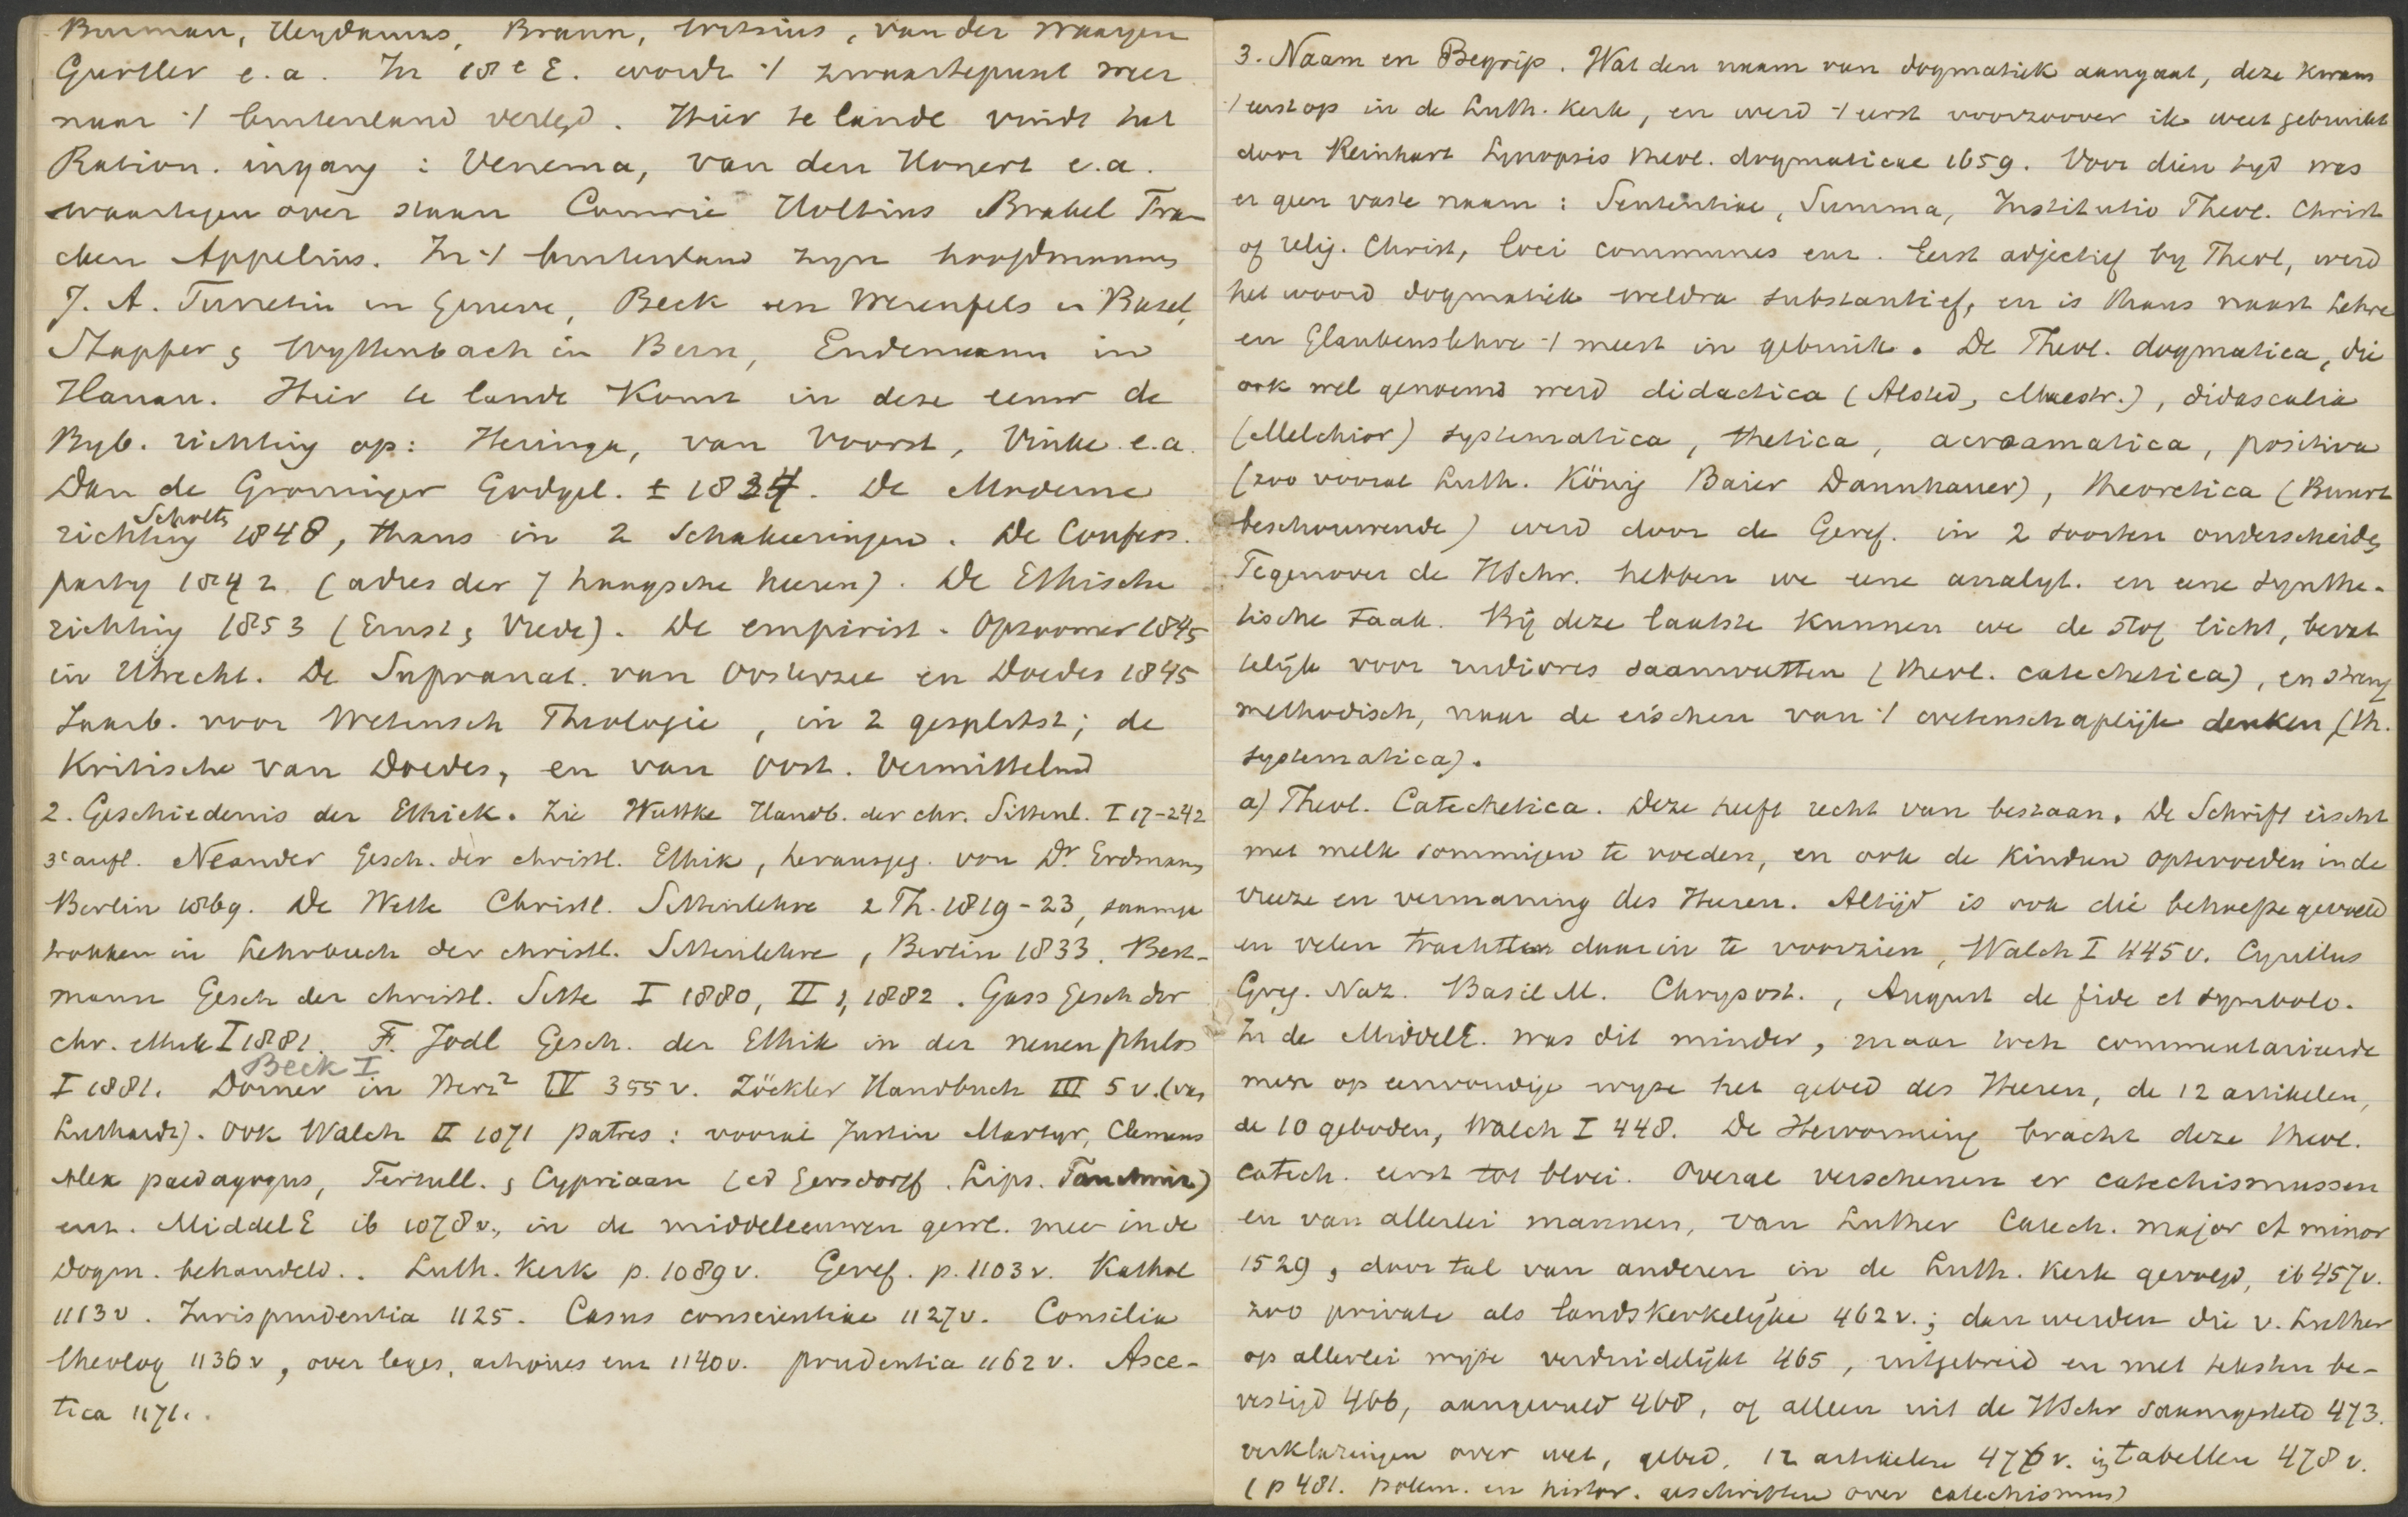 Burman, Heydanus, Braun, Witsius, van der Waayen
Gurtler e.a. In 18e E. wordt 't zwaartepunt meer
naar 't buitenland verlegd. Hier te lande vindt het
Ration. ingang: Venema, van den Honert e.a.
waartegen over staan Comrie Holtius Brakel Fran
cken Appelius. In 't buitenland zijn hoofdmannen
J. A. Turretin in Geneve, Beck en Werenfels in Basel,
Stapfer & Wyttenbach in Bern, Endemann in
Hanau. Hier te lande komt in deze eeuw de
Byb. richting op: Heringa, van Voorst, Vinke e.a.
Dan de Groninger Godgel. ± 1834. De Moderne
Scholten
richting 1848, thans in 2 schakeeringen. De Confess.
party 1842 (adres der 7 haagsche heeren). De Ethische
richting 1853 (Ernst & Vrede). De empirist. Opzoomer 1845
in Utrecht. De Supranat. van Oosterzee en Doedes 1845
Jaarb. voor Wetensch Theologie, in 2 gesplitst; de
Kritische van Doedes, en van Oost. Vermittelnd
2. Geschiedenis der Ethiek. Zie Wuttke Handb. der chr. Sittenl. I 17-242
3e aufl. Neander Gesch. der christl. Ethik, herausgeg. von Dr. Erdmann,
Berlin 1869. De Wette Christl. Sittenlehre 2 Th. 1819-23, saamge
trokken in Lehrbuch der christl. Sittenlehre, Berlin 1833. Best-
mann Gesch der christl. Sitte I 1880, II 1, 1882. Gass Gesch der
chr. Ethik I 1881. F. Jodl Gesch. der Ethik in der neuen philos
Beck I
I 1881. Dorner in Herz2 IV 355 v. Zöckler Handbuch III 5 v. (van
Luthardt). Ook Walch II 1071 patres: vooral Justin Martyr, Clemens
Alex paedagogus, Tertull. & Cypriaan (ed Gersdorff. Lips. Tauchnitz)
enz. Middel E ib 1078 v., in de middeleeuwen gewl. mee in de
Dogm. behandeld.. Luth. Kerk p. 1089 v. Geref. p. 1103 v. Kathol
1113 v. Jurisprudentia 1125. Casus conscientiae 1127 v. Consilia
theolog 1136 v, over leges, actiones enz 1140 v. prudentia 1162 v. Asce-
tica 1171.
3. Naam en Begrip. Wat den naam van dogmatiek aangaat, deze kwam
't eerst op in de Luth. Kerk, en werd 't eerst voorzoover ik weet gebruikt
door Reinhart Synopsis theol. dogmaticae 1659. Voor dien tyd was
er geen vaste naam: Sententiae, Summa, Institutio Theol. Christ
of relig. Christ, loci communes enz. Eerst adjectief by Theol, werd
het woord dogmatiek weldra substantief, en is thans naast Lehre
en Glaubenslehre 't meest in gebruik. De Theol. dogmatica, die
ook wel genoemd werd didactica (Alsted, Maestr.), didascalia
(Melchior) systematica, thetica, acroamatica, positiva
(zoo vooral Luth. König Baier Dannhauer), theoretica (Buurt
beschouwende) werd door de Geref. in 2 soorten onderscheiden
Tegenover de HSchr. hebben we eene analyt. en eene synthe-
tische taak. Bij deze laatste kunnen we de stof licht, bevat
telijk voor rudiores saamvatten (theol. catechetica), en streng
methodisch, naar de eischen van 't wetenschaplijk denken (th.
systematica).
a) Theol. Catechetica. Deze heeft recht van bestaan. De Schrift eischt
met melk sommigen te voeden, en ook de Kinderen optevoeden in de
vreeze en vermaning des Heeren. Altijd is ook die behoefte gevoeld
en velen trachtten daarin te voorzien, Walch I 445 v. Cyrillus
Greg. Naz. Basil M. Chrysost., August de fide et symbolo.
In de MiddelE. was dit minder, maar toch commentarieerde
men op eenvoudige wyze het gebed des Heeren, de 12 artikelen,
de 10 geboden, Walch I 448. De Hervorming bracht deze theol.
catech. eerst tot bloei. Overal verschenen er catechismussen
en van allerlei mannen, van Luther Catech. major et minor
1529, door tal van anderen in de Luth. Kerk gevolgd, ib 457 v.
zoo private als landskerkelijke 462 v.; dan werden die v. Luther
op allerlei wijze verduidelijkt 465, uitgebreid en met teksten be-
vestigd 466, aangevuld 468, of alleen uit de HSchr saamgesteld 473.
verklaringen over wet, gebed, 12 artikelen 476 v. in tabellen 478 v.
(p 481. polem. en histor. geschriften over catechismus)